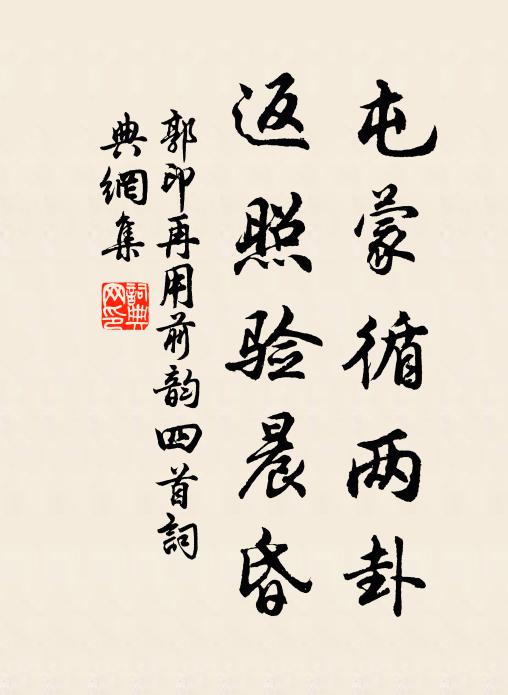 屯蒙循两卦
返照验晨昏
郭印再用前韵四首詞
典網集
詞典網印